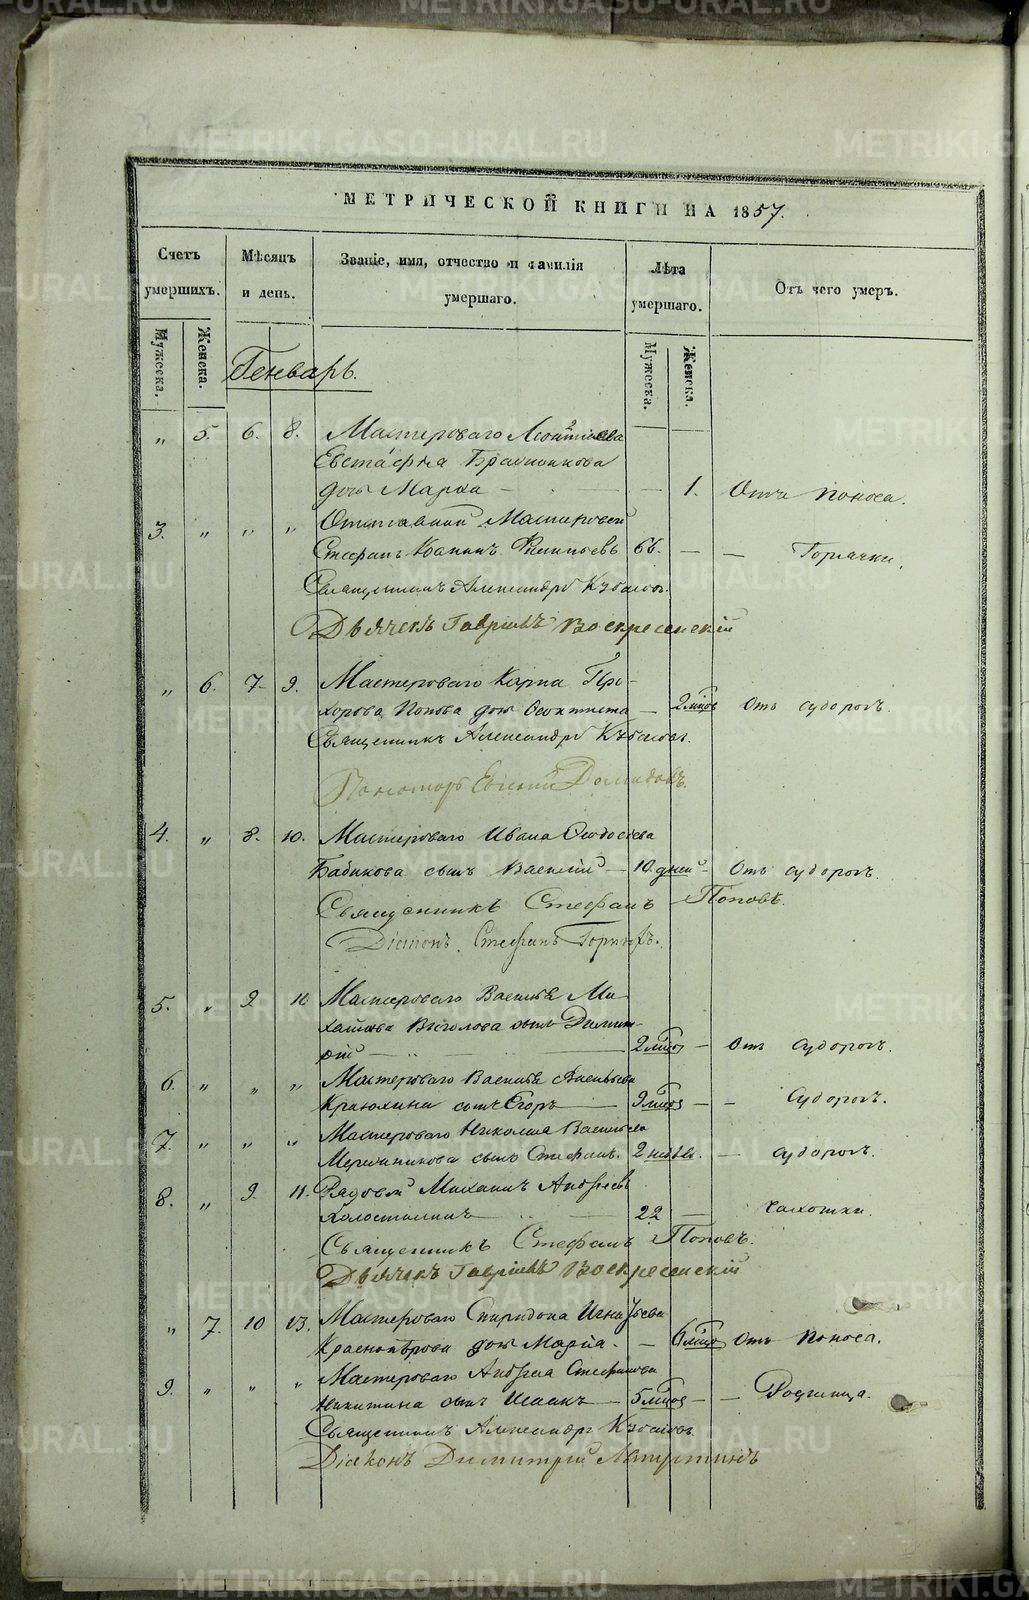 МЕТРИЧЕСКОЙ КНИГИ НА 1857.
Счетъ умершихъ.
Мѣсяцъ и день.
Званіе, имя, отчество и фамилія умершаго.
Лѣта умершаго.
Отъ чего умеръ.
Мужеска. Женска.
Мужеска. Женска.
Генварь.
„ 5. 6. 8. Мастероваго
Евстафія
дочь Марѳа — — 1. Отъ поноса.
3. „ „ „ Отставный Мастеровой
Стефанъ 66. — — Горячки.
Священникъ Александръ
Дьячекъ Гавріилъ Воскресенскій
„ 6. 7. 9. Мастероваго Карпа Про-
хорова Попова дочь — 2 мѣсяц Отъ судорогъ.
Священникъ Александръ
Пономарь Евгеній Демидовъ.
4. „ 8. 10. Мастероваго Ивана Ѳеодосѣева
Бабикова сынъ Василій — 10. дней — Отъ судорогъ.
Священникъ Стефанъ Поповъ.
Діаконъ Стефанъ
5. „ 9 11 Мастероваго Василья Ми-
хайлова сынъ Димит-
рій — — 2 мѣсяц — Отъ судорогъ.
6. „ „ „ Мастероваго Василья Васильева
Краюхина сынъ Егоръ — 9 мѣсяц — — Судорогъ.
7. „ „ „ Мастероваго Николая Васильева
Мерлиникова сынъ Стефанъ. 2 недѣли. — судорогъ.
8. „ 9. 11. Рядовый Михаилъ Андреевъ
22 — чахотки.
Священникъ Стефанъ Поповъ.
Дьячекъ Гавріилъ Воскресенскій
„ 7. 10 13. Мастероваго Спиридона Игнатьева
Краснопёрова дочь Марія. — 6 мѣсяц Отъ поноса.
9. „ „ „ Мастероваго Андрея Стефанова
Никитина сынъ Исаакъ — 5 мѣсяц — — Родимца.
Священникъ Александръ
Діаконъ Димитрій
METRIKI.GASO-URAL.RU